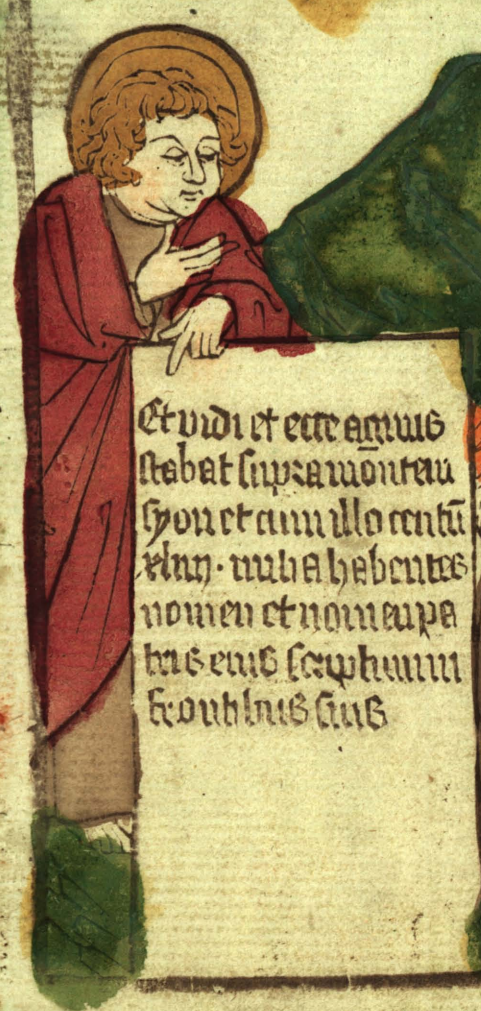 Et vidi et ecce agnus
stabat supra mōtem
syon et cum illo centū
xliiij · milia habentes
nomen et nomen pa
tris eius scriptum in
frontibus suis